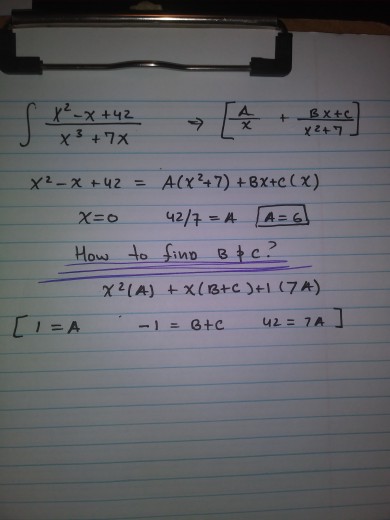 ∫ x² - x + 42 / x³ + 7x → [ A/x + Bx+c / x²+7 ]
x² - x + 42 = A(x²+7) + Bx+c (x)
x=0 42/7 = A A=6
How to find B & C?
x²(A) + x(B+C) + 1(7A)
[ 1 = A -1 = B+C 42 = 7A ]